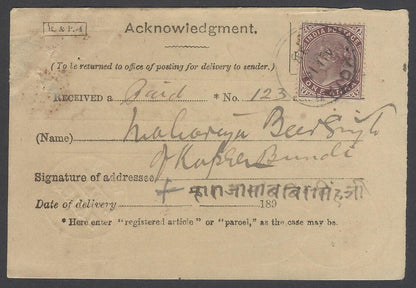 R. & P.-4
Acknowledgment.
INDIA POSTAGE
ONE ANNA
(To be returned to office of posting for delivery to sender.)
RECEIVED a Paid * No. 123
(Name) Maharaja Beer Singh
of Bundi
Signature of addressee
Date of delivery 189
* Here enter "registered article" or "parcel," as the case may be.